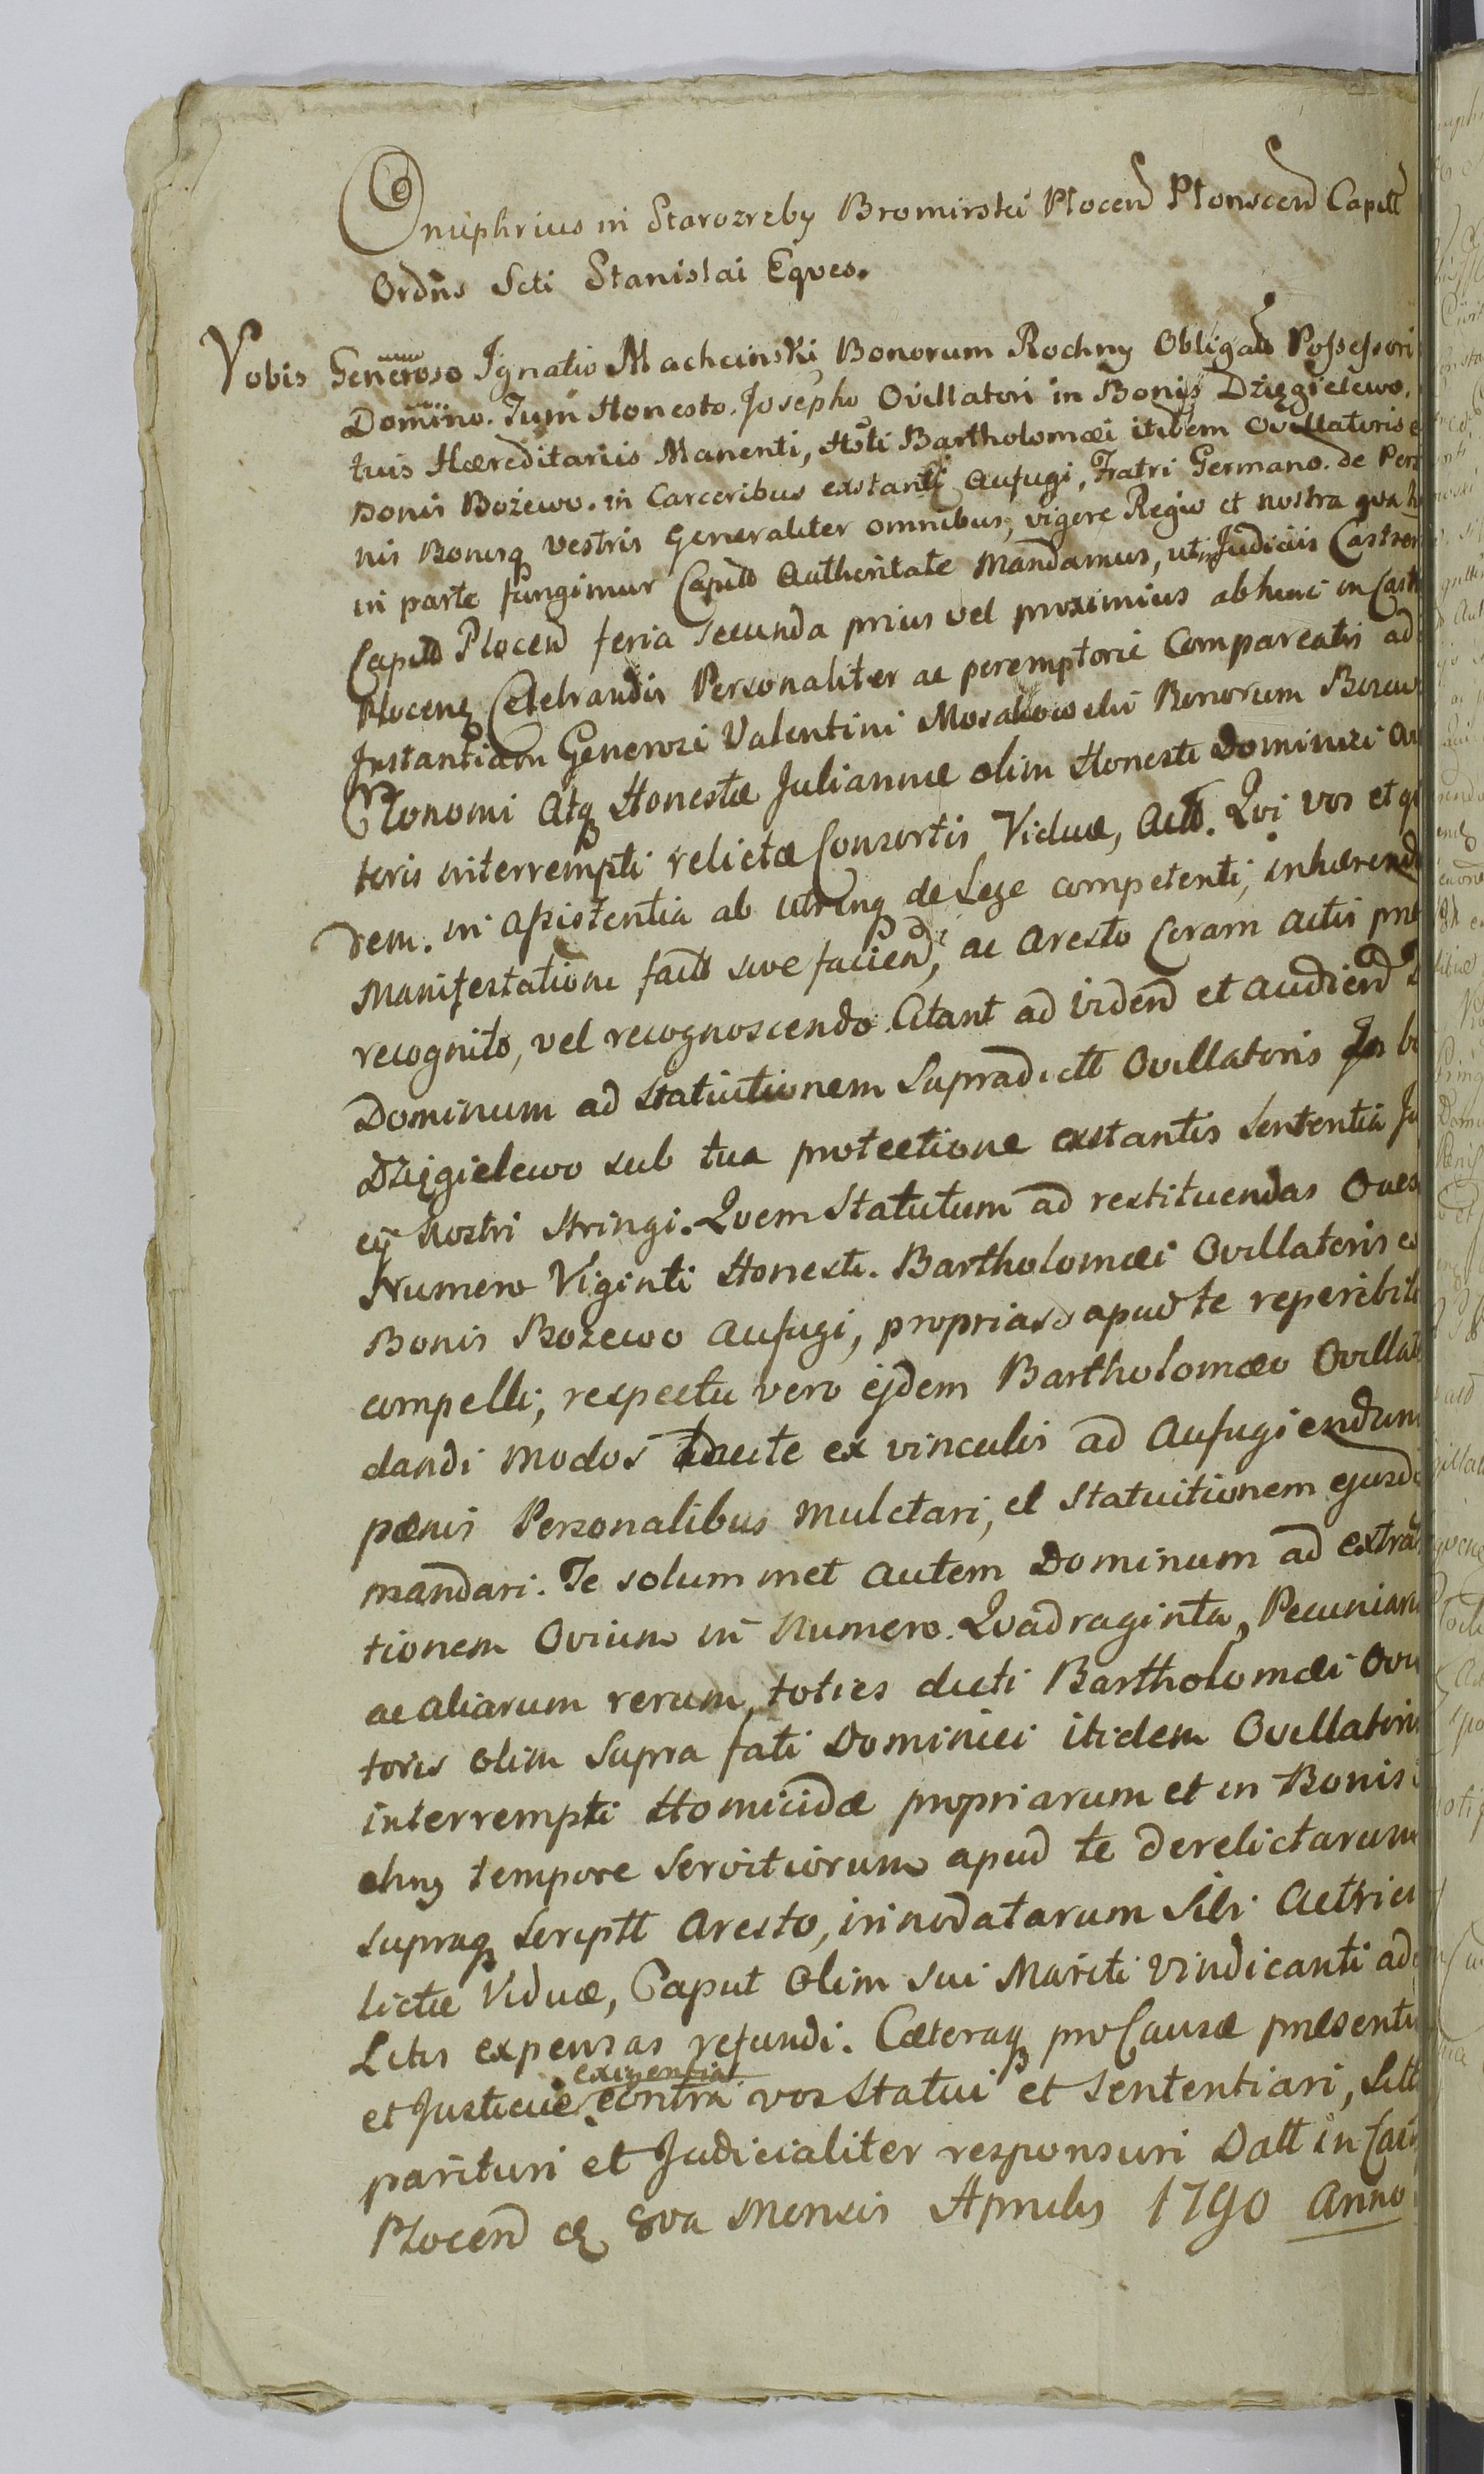 Onuphrius in Starozreby Bromirski Plocen Plonscen Capitt
Ordns Scti Stanislai Eques.
Vobis Generoso Ignatio Machcinski Bonorum Rochny Obligato Possessori
Domino. Tum Honesto. Josepho Ovillatori in Bonis Dzięgielewo.
tuis Hæreditariis Manenti, Hsti Bartholomæi itidem Ovillatoris e
Bonis Bożewo. in Carceribus exstanti Aufugi, Fratri Germano. de Perso
nis Bonisq vestris Generaliter omnibus, vigore Regio et nostra qva h
in parte fungimur Capitt Authoritate Mandamus, ut in Judiciis Castren
Capitt Plocen feria secunda prius vel proximius ab hinc in Cast
Plocen Celebrandis Personaliter ac peremptorie Compareatis ad
Instantiam Generosi Valentini Mosakowski Bonorum Bozew
Œconomi Atq Honestæ Juliannæ olim Honesti Dominici Ov
toris interrempti relictæ Consortis Viduæ, Actt. Qvi vos et q
dem. in Assistentia ab utrinq de Lege competenti, inhærend
Manifestationi factt sive faciend, ac Aresto Coram Actis pne
recognito, vel recognoscendo Citant ad videnD et audienD
Dominum ad statuitionem Supradictt Ovillatoris In b
Dzięgielewo sub tua protectione exstantis sententia Ju
cij Nostri stringi. Qvem Statutum ad restituendas Oves
Numero Viginti Honesti. Bartholomæi Ovillatoris ex
Bonis Bozewo Aufugi, propriase apud te reperibil
compelli, respectu vero ejdem Bartholomæo Ovillat
dandi modos tacite ex vinculis ad Aufugiendum
pœnis Personalibus mulctari, et statuitionem ejusd
mandari. Te solum met autem Dominum ad extra
tionem Ovium in Numero. Qvadraginta, Pecuniaru
ac aliarum rerum, toties dicti Bartholomæi Ovi
toris olim Supra fati Dominici itidem Ovillatoris
interrempti Homicidæ propriarum et in Bonis
tempore servitiorum apud te derelictarum
supraq scriptt Aresto, innodatarum sibi Actrici
lictæ Viduæ, Caput olim sui Mariti vindicanti ad
Litis expensas refundi. Cæteraq pro Causæ præsentis
exigentia
et Justiciæ contra vos Statui et sententiari, sitt
parituri et Judicialiter responsuri Datt in Cast
Plocen d 8va Mensis Aprilis 1790 Anno